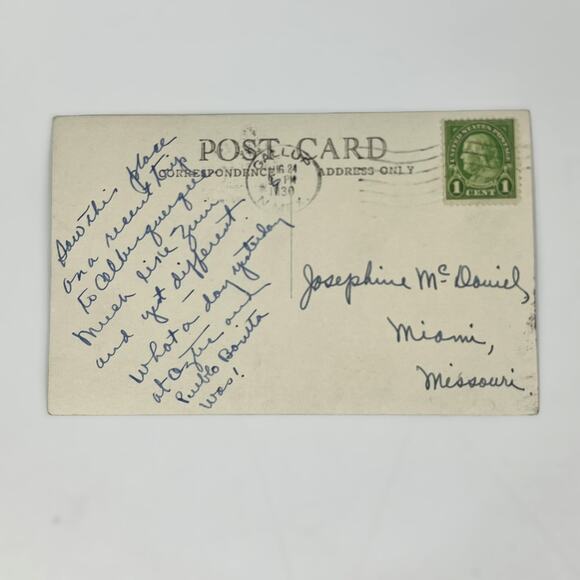 POST CARD
CORRESPONDENCE
ADDRESS ONLY
GALLUP
AUG 24
PM
1930
N. MEX.
UNITED STATES POSTAGE
1 CENT 1
Saw this place
on a recent trip
to Albuquerque
Much like Zuni
and yet different
What a day yesterday
at Aztec and
Pueblo Bonita
was!
Josephine McDaniel,
Miami,
Missouri